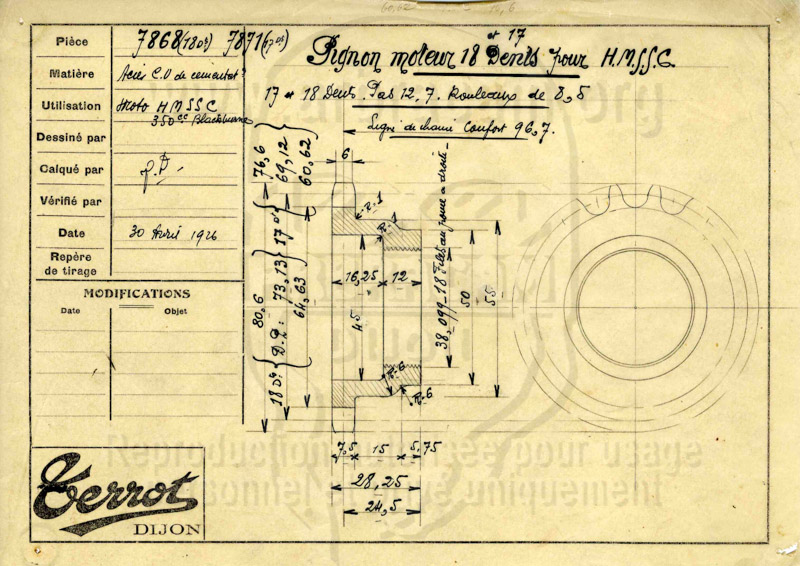 60,62
Pièce 7868 (18Dts) 7871 (17Dts)
Matière Acier C.V de cementat?
Utilisation Moto H M S S C
350cc Blackburne
Dessiné par
Calqué par
Vérifié par
Date 30 Avril 1926
Repère
de tirage
MODIFICATIONS
Date Objet
Terrot
DIJON
et 17
Pignon moteur 18 Dents pour H.M.S.S.C.
17 et 18 Dents. Pas 12,7. Rouleaux de 8,5
Ligne de chaine Confort 96,7.
6
76,6
69,12
60,62
R.1
R.1
17 Dts
18 Dts
D.P.:
73,13
64,63
80,6
16,25
12
45
38,099_18 Filets au pouce à droite_
50
55
R.6
R.6
7,5
15
5,75
28,25
24,5
Reproduction pour usage
uniquement